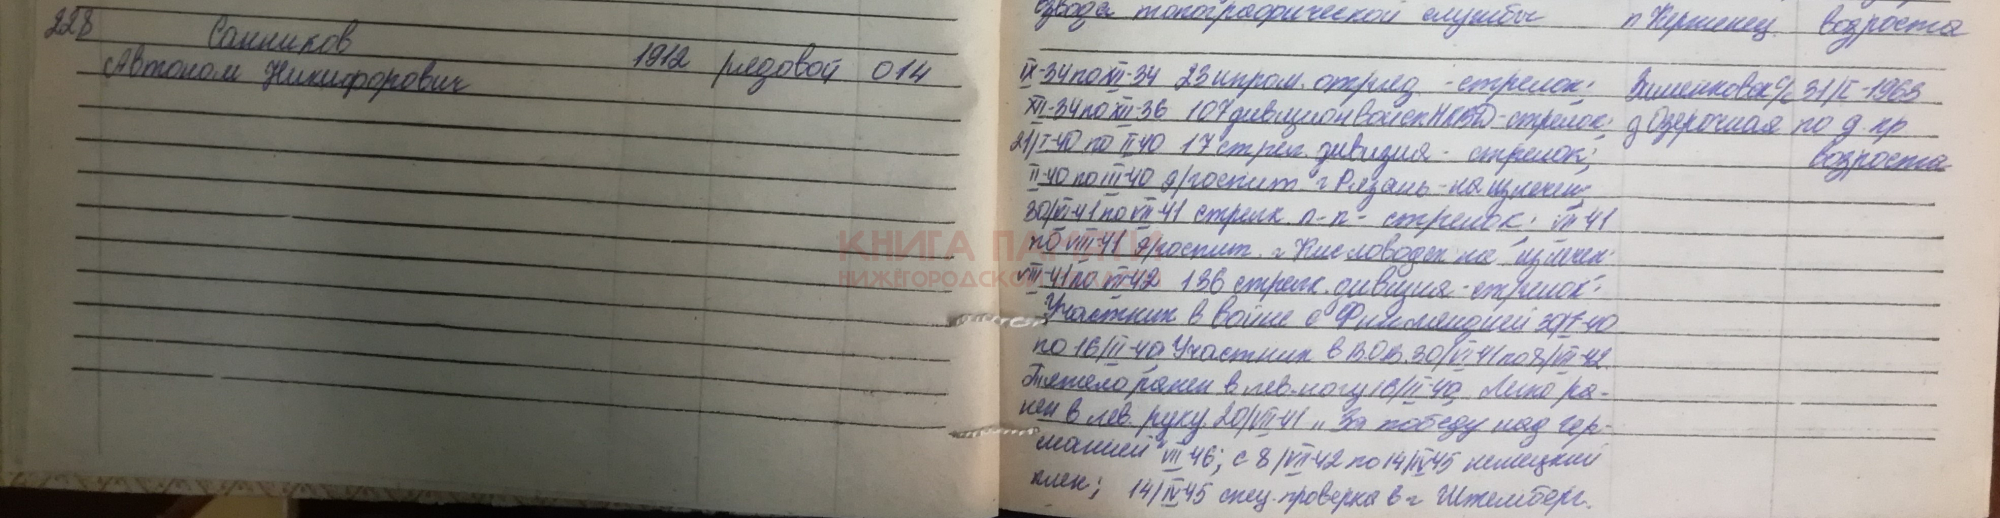 взвода топографической службы п Керженец возроста
228 Санников
Автоном Никифорович 1912 рядовой 014
IX-34 по XII-34 23 отряд - стрелок;
XII-34 по XII-36 107 дивизион войск НКВД - стрелок;
21/I-40 по II-40 17 стрел. дивизия - стрелок;
II-40 по III-40 э/госпит. г Рязань - на излечен;
30/VI-41 по VII-41 стрелк. п-к - стрелок; VII-41
по VIII-41 э/госпит. г Кисловодск на излечен.
VIII-41 по VII-42 136 стрелк. дивизия - стрелок.
Участник в войне с Финляндией
по 16/II-40 Участник в В.О.В. 30/VI-41 по 8/VII-42.
Тяжело ранен в лев. ногу 16/II-40, Легко ра-
нен в лев. руку 20/VII-41 „За победу над Гер-
манией" VII-46; с 8/VII-42 по 14/IV-45 немецкий
плен; 14/IV-45 спец. проверка в г
с/с 31/X-1963
д Озерочная по д. пр
возроста
КНИГА ПАМЯТИ
НИЖЕГОРОДСКОЙ ОБЛАСТИ